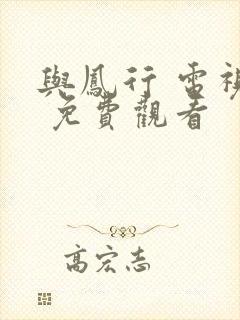 與鳳行 電視
免費觀看
高宏志